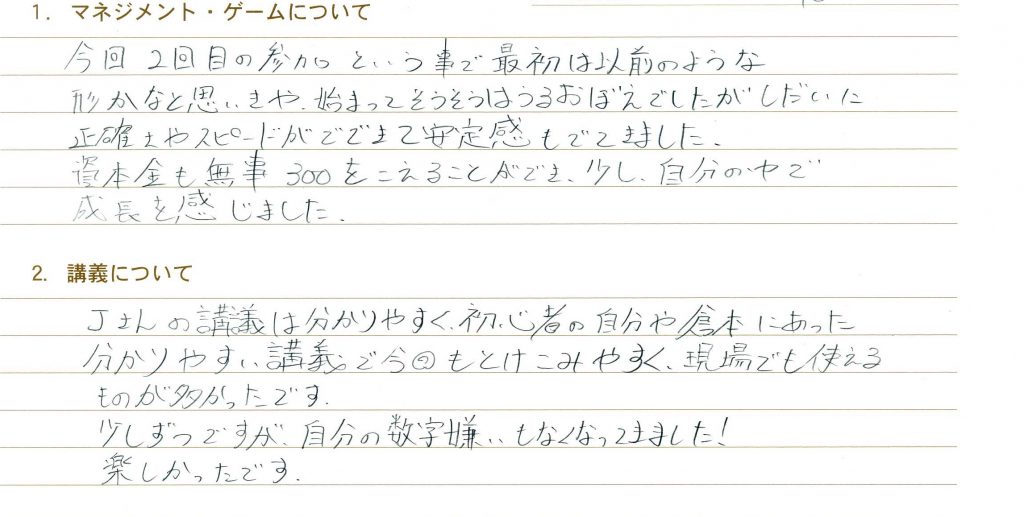 1. マネジメント・ゲームについて
今回2回目の参加という事で最初は以前のような
形かなと思いきや、始まってそうそうはうるおぼえでしたがしだいに
正確さやスピードがでてきて安定感もでてきました。
資本金も無事300をこえることができ、少し、自分の中で
成長を感じました。
2. 講義について
Jさんの講義は分かりやすく、初心者の自分や倉本にあった
分かりやすい講義で今回もとけこみやすく、現場でも使える
ものが多かったです。
少しずつですが、自分の数字嫌いもなくなってきました!
楽しかったです。